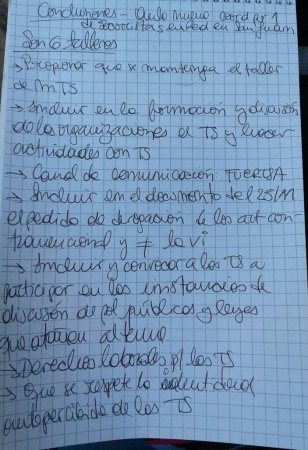 Conclusiones - taller nuevo coord por
de Socorristas en red en San Juan
Son 6 talleres
→ Proponer que se mantenga el taller
de M.TS
→ Incluir en la formación y discusión
de las organizaciones el TS y hacer
actividades con TS
→ Canal de comunicación: FUERSA
→ Incluir en el documento del 25/M
el pedido de derogación de los art con-
travencional y ≠ la vi
→ Incluir y convocar a las TS a
participar en las instancias de
discusión de pol públicas y leyes
que atañen al tema
→ Derechos laborales p/ las TS
→ Que se respete la identidad
autopercibida de las TS